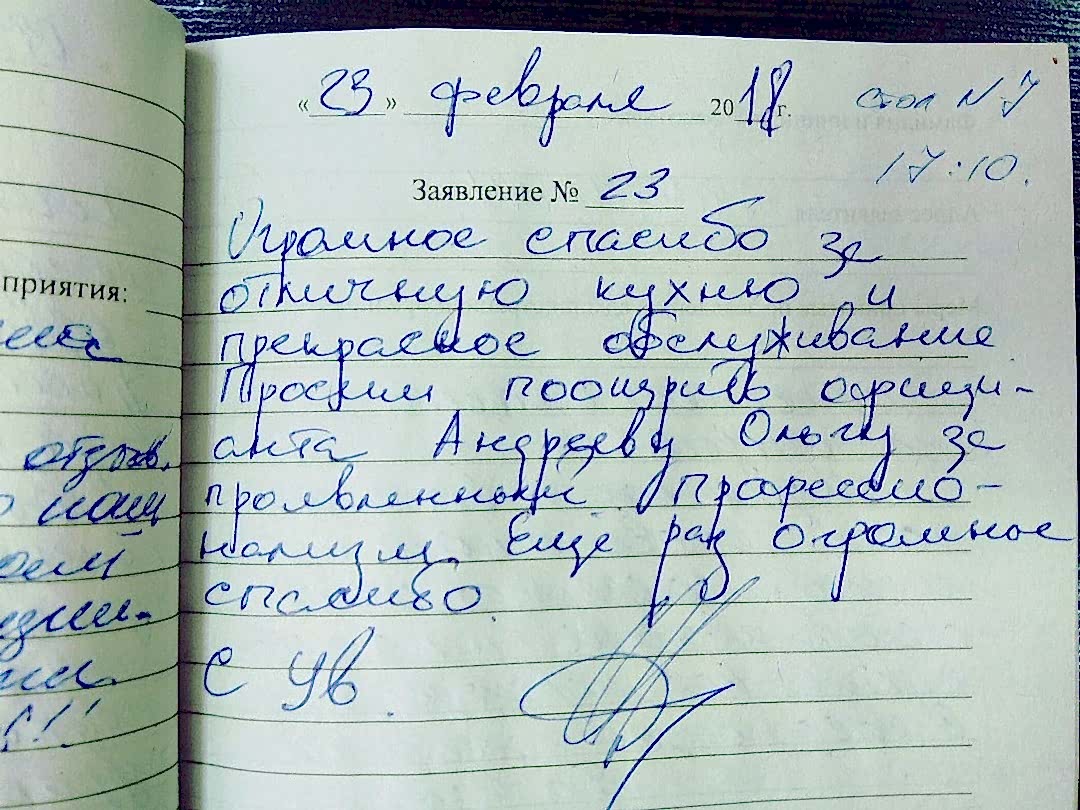 «23» февраля 2018 г. стол N 7
17:10.
Заявление № 23
Огромное спасибо за
отличную кухню и
прекрасное обслуживание
Просим поощрить офици-
анта Андрееву Ольгу за
проявленный професссио-
нализм. Еще раз огромное
спасибо
С ув.
приятия:
отзыв.
наш